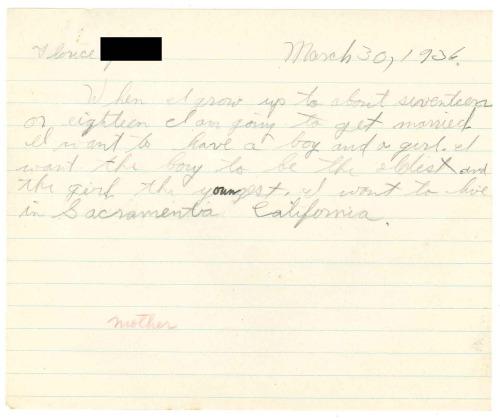 Florice March 30, 1936.
When I grow up to about seventeen
or eighteen I am going to get married
I want to have a boy and a girl. I
want the boy to be the oldest and
the girl the youngest. I want to live
in Sacramento California.
mother